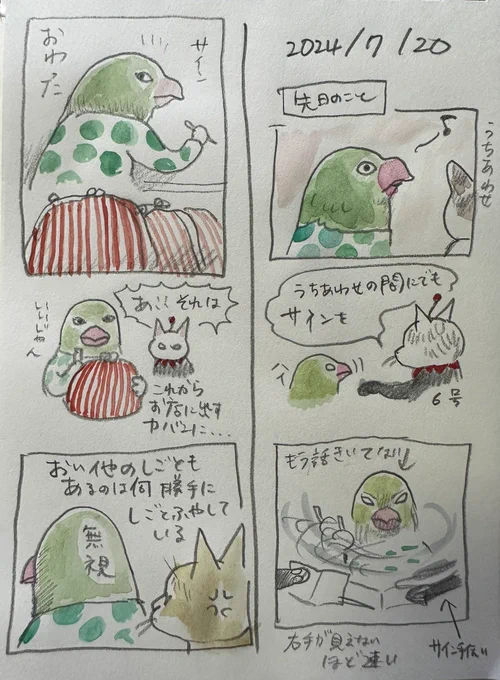 2024/7/20
先日のこと
うちあわせ
うちあわせの間にでも
サインを
ハイ
6号
もう話きいてない
サイン手伝い
右手が見えない
ほど速い
サイン
おわた
あ、それは
これから
お店に出す
カバンに...
いいじゃん
おい他のしごとも
あるのは何勝手に
しごとふやして
いる
無
視